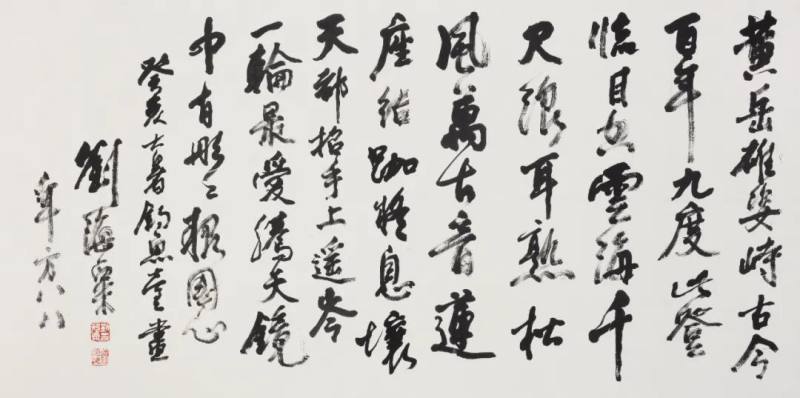 黄岳雄姿峙古今
百年九度此登
臨目空雲海千
尺浪耳熟松
風萬古音蓮
座結跏疑息壤
天都招手上遥岑
一輪最愛騰天鏡
中有彤〻報國心
癸亥大暑釣魚臺畫
劉海粟
年方八八